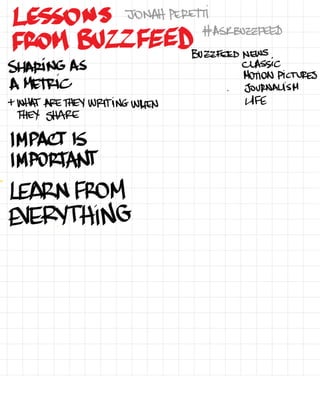 LESSONS JONAH PERETTI
FROM BUZZFEED #ASKBUZZFEED
BUZZFEED NEWS
SHARING AS CLASSIC
A METRIC MOTION PICTURES
JOURNALISM
+ WHAT ARE THEY WRITING WHEN LIFE
THEY SHARE
IMPACT IS
IMPORTANT
LEARN FROM
EVERYTHING